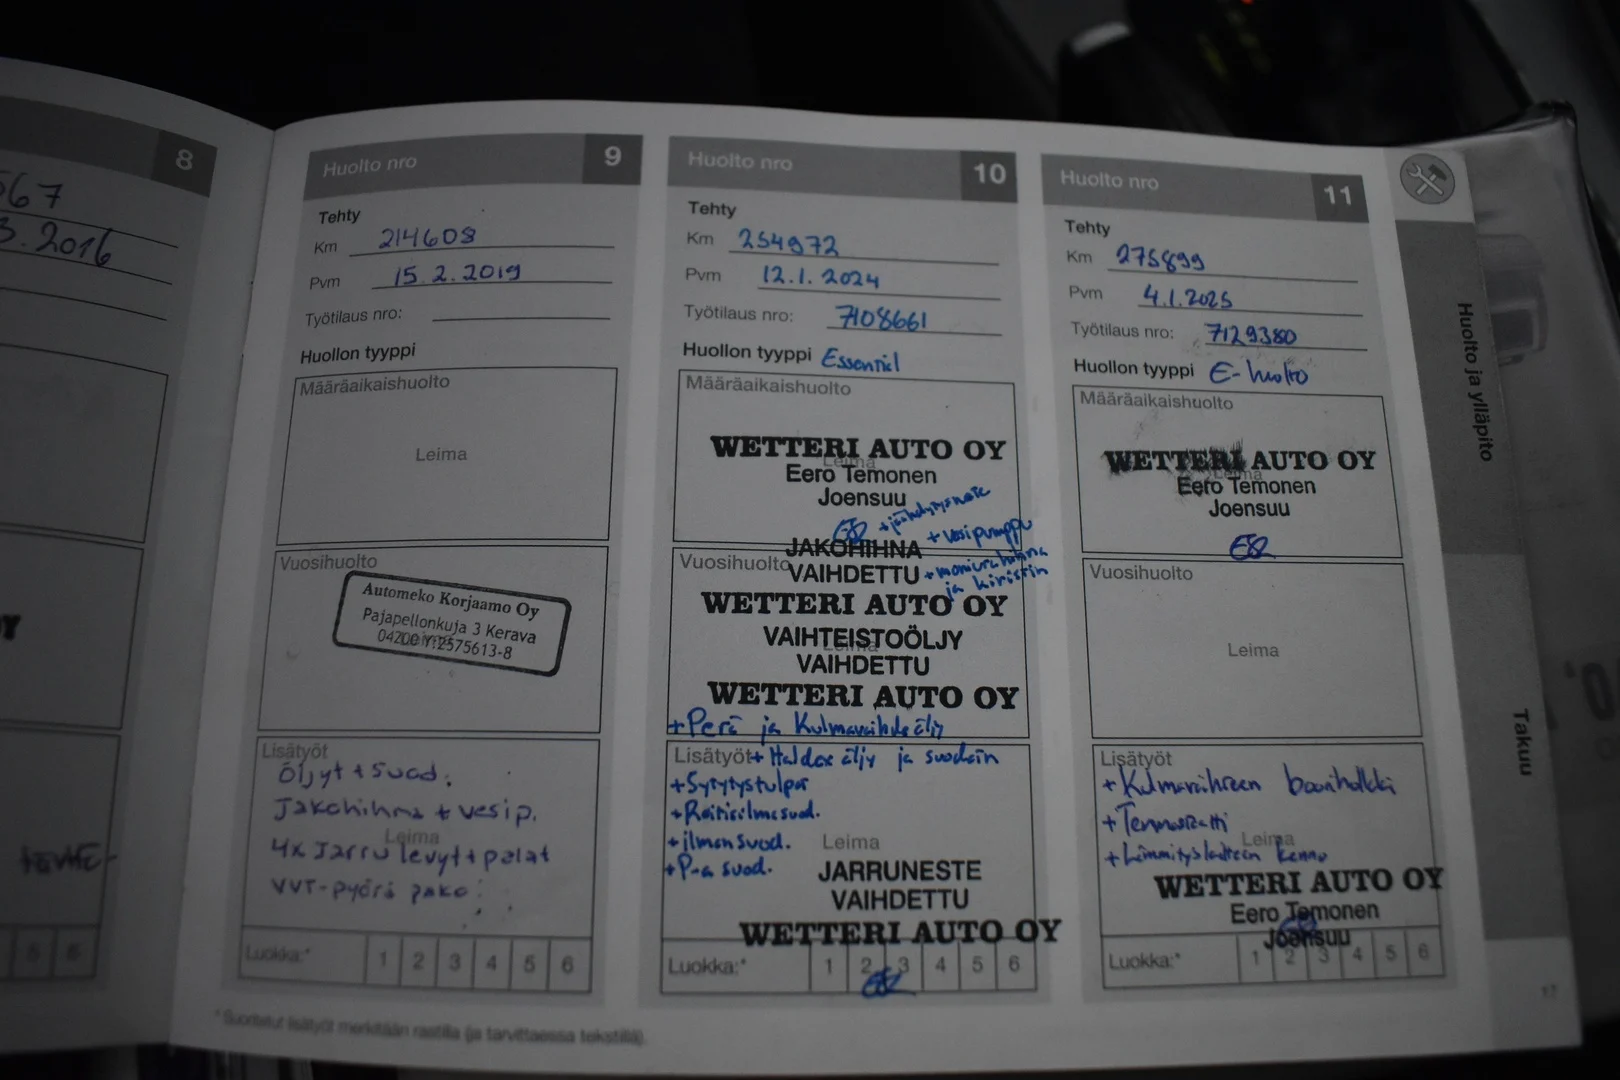 8
567
3.2016
Huolto nro 9
Tehty
Km 214608
Pvm 15.2.2019
Työtilaus nro:
Huollon tyyppi
Määräaikaishuolto
Leima
Vuosihuolto
Automeko Korjaamo Oy
Pajapellonkuja 3 Kerava
04200 Y:2575613-8
Lisätyöt
Öljyt + Suod.
Jakohihna + vesip.
Leima
4x Jarrulevyt + palat
VVT-pyörä pako
Luokka:* 1 2 3 4 5 6
Huolto nro 10
Tehty
Km 254972
Pvm 12.1.2024
Työtilaus nro: 7108661
Huollon tyyppi Essential
Määräaikaishuolto
WETTERI AUTO OY
Leima
Eero Temonen
Joensuu
+ jäähdytysneste
+ vesipumppu
JAKOHIHNA
Vuosihuolto
VAIHDETTU + moniurahihna
ja kiristin
WETTERI AUTO OY
VAIHTEISTOÖLJY
Leima
VAIHDETTU
WETTERI AUTO OY
+ Perä ja Kulmavaihde öljy
Lisätyöt + Haldex öljy ja suodatin
+ Sytytystulpat
+ Raitisilmasuod.
+ ilmansuod. Leima
+ P-a suod. JARRUNESTE
VAIHDETTU
WETTERI AUTO OY
Luokka:* 1 2 3 4 5 6
Huolto nro 11
Tehty
Km 275899
Pvm 4.1.2025
Työtilaus nro: 7129380
Huollon tyyppi E-huolto
Määräaikaishuolto
WETTERI AUTO OY
Leima
Eero Temonen
Joensuu
Vuosihuolto
Leima
Lisätyöt
+ Kulmavaihteen
+ Termostaatti
Leima
+ Lämmityslaitteen kenno
WETTERI AUTO OY
Eero Temonen
Joensuu
Luokka:* 1 2 3 4 5 6
* Suoritetut lisätyöt merkitään rastilla (ja tarvittaessa tekstillä).
Huolto ja ylläpito
Takuu
17